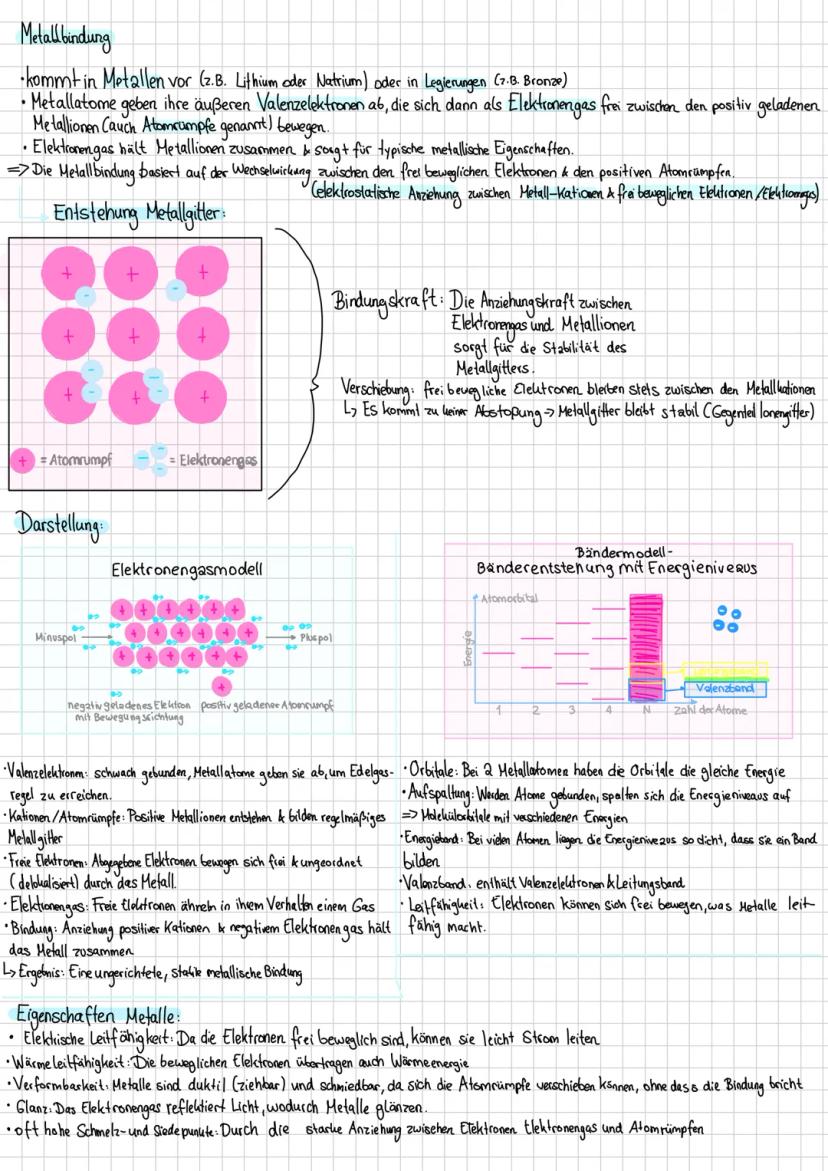 Metallbindung
• kommt in Metallen vor (z.B. Lithium oder Natrium) oder in Legierungen (z.B. Bronze)
• Metallatome geben ihre äußeren Valenzelektronen ab, die sich dann als Elektronengas frei zwischen den positiv geladenen
Metallionen (auch Atomrümpfe genannt) bewegen.
• Elektronengas hält Metallionen zusammen & sorgt für typische metallische Eigenschaften.
=> Die Metallbindung basiert auf der Wechselwirkung zwischen den frei beweglichen Elektronen & den positiven Atomrümpfen.
(elektrostatische Anziehung zwischen Metall-Kationen & frei beweglichen Elektronen /Elektronengas)
Entstehung Metallgitter:
+ + +
- -
+ + +
- -
+ + +
- -
+ = Atomrumpf - - - = Elektronengas
Bindungskraft: Die Anziehungskraft zwischen
Elektronengas und Metallionen
sorgt für die Stabilität des
Metallgitters.
Verschiebung: frei bewegliche Elektronen bleiben stets zwischen den Metallkationen
↳ Es kommt zu keiner Abstoßung → Metallgitter bleibt stabil (Gegenteil Ionengitter)
Darstellung:
Elektronengasmodell
+ + + + + +
Minuspol + + + + + + Pluspol
+ + + + + +
+
negativ geladenes Elektron positiv geladener Atomrumpf
mit Bewegungsrichtung
• Valenzelektronen: schwach gebunden, Metallatome geben sie ab, um Edelgas-
regel zu erreichen.
• Kationen/Atomrümpfe: Positive Metallionen entstehen & bilden regelmäßiges
Metallgitter
• Freie Elektronen: Abgegebene Elektronen bewegen sich frei & ungeordnet
(delokalisiert) durch das Metall.
• Elektronengas: Freie Elektronen ähneln in ihrem Verhalten einem Gas
• Bindung: Anziehung positiver Kationen & negativem Elektronengas hält
das Metall zusammen
↳ Ergebnis: Eine ungerichtete, starke metallische Bindung
Bändermodell-
Bänderentstehung mit Energieniveaus
Atomorbital
Energie
Valenzband
1 2 3 4 N Zahl der Atome
• Orbitale: Bei 2 Metallatomen haben die Orbitale die gleiche Energie
• Aufspaltung: Werden Atome gebunden, spalten sich die Energieniveaus auf
=> Molekülorbitale mit verschiedenen Energien
• Energieband: Bei vielen Atomen liegen die Energieniveaus so dicht, dass sie ein Band
bilden
• Valenzband: enthält Valenzelektronen & Leitungsband
• Leitfähigkeit: Elektronen können sich frei bewegen, was Metalle leit-
fähig macht.
Eigenschaften Metalle:
• Elektrische Leitfähigkeit: Da die Elektronen frei beweglich sind, können sie leicht Strom leiten
• Wärmeleitfähigkeit: Die beweglichen Elektronen übertragen auch Wärmeenergie
• Verformbarkeit: Metalle sind duktil (ziehbar) und schmiedbar, da sich die Atomrümpfe verschieben können, ohne dass die Bindung bricht
• Glanz: Das Elektronengas reflektiert Licht, wodurch Metalle glänzen.
• oft hohe Schmelz- und Siedepunkte: Durch die starke Anziehung zwischen Elektronen Elektronengas und Atomrümpfen